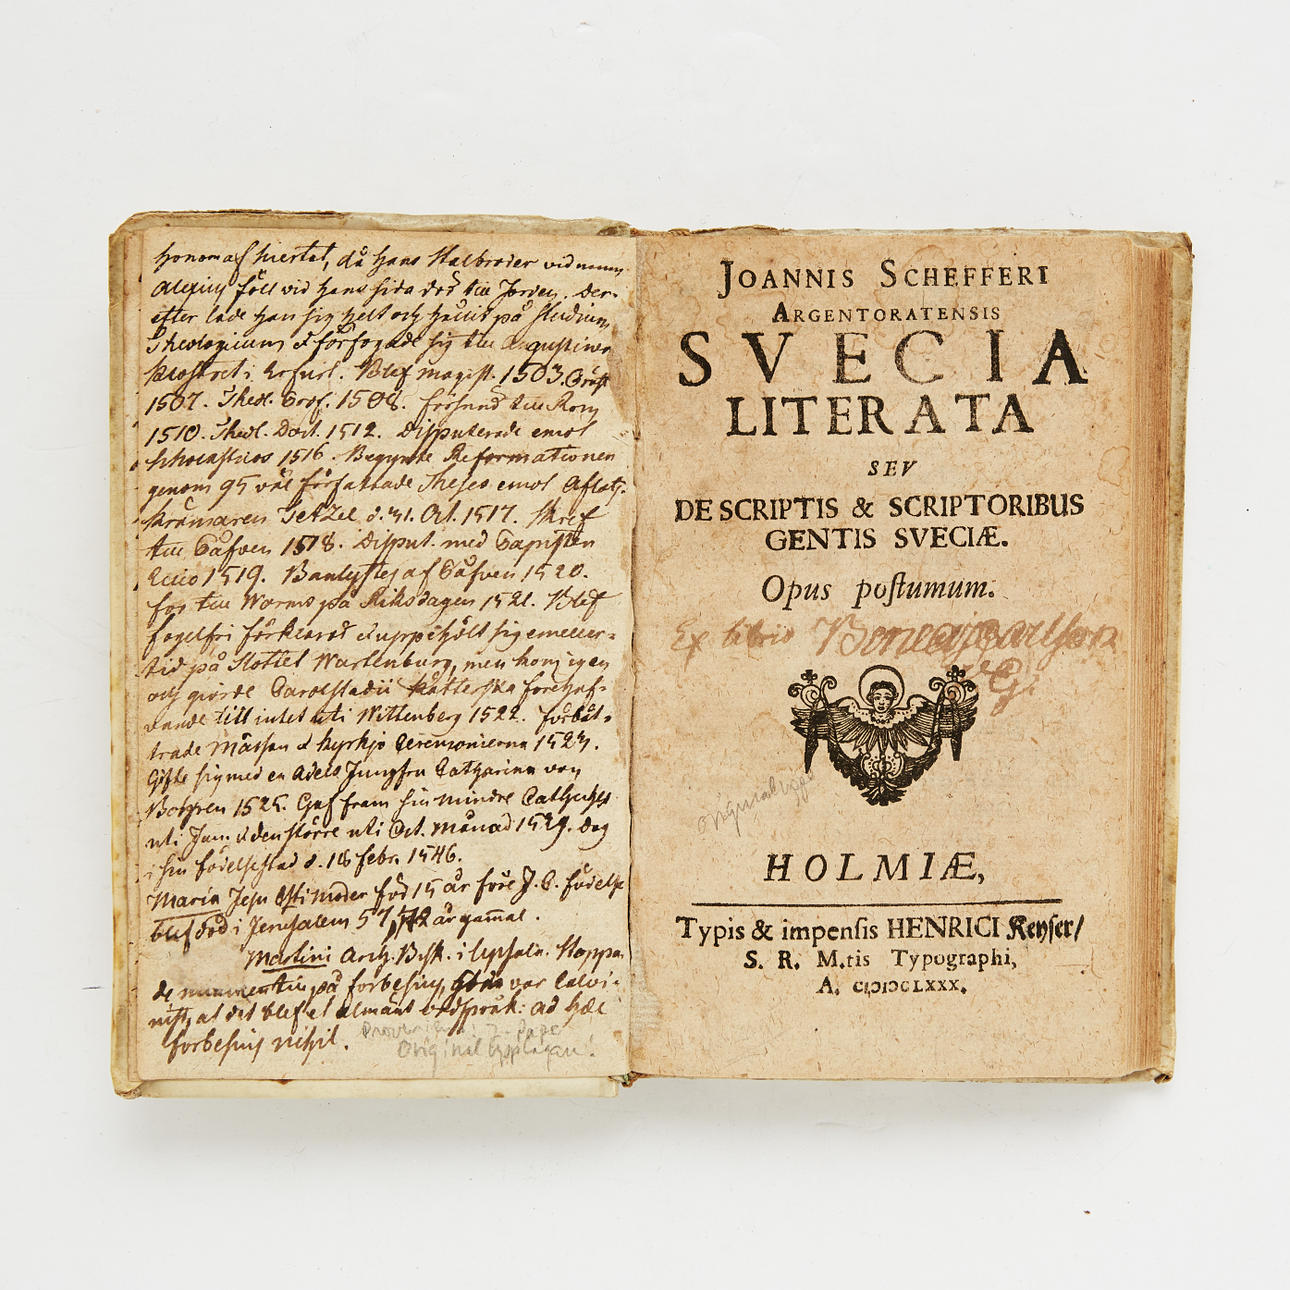 honom af hiertat, då hans Stalbroder vid namn
Alexius föll vid hans sida död till Jorden. Der-
efter lade han sig helt och hållit på Studium
Theologicum & förfogade sig till Augustiner
klostret i Erfurt. Blef magist. 1503. Präst
1507. Theol. Prof. 1508. försänd till Rom
1510. Theol. Doct. 1512. Disputerade emot
Scholasticos 1516. Begynte Reformationen
genom 95 väl författade Theses emot Aflats-
krämaren Tetzel d. 31. Oct. 1517. Skref
till Påfven 1518. Disput. med Papisten
Eccio 1519. Banlystes af Påfven 1520.
for till Worms på Riksdagen 1521. Blef
fogelfri förklarad & uppehölt sig emeller-
tid på Slottet Wartenburg, men kom igen
och giorde Carolstadii kätterska förehaf-
vande till intet uti Wittenberg 1522. förbät-
trade Mässan & kyrkjo Ceremonierna 1523.
Gifte sig med en Adels Jungfru Catharina von
Borgren 1525. Gaf fram sin mindre Catheches
uti Jan. & den större uti Oct. månad 1529. Dog
i sin födelsestad d. 18 febr. 1546.
Maria Jesu Christi moder föd 15 år före J. C. födelse
blef död i Jerusalem 57, år gammal.
Martini Arch. Bisk. i Upsala. Hoppa
de på forbesius, var Calvi-
nist, at det blef et almänt ordspråk: ad hæc
forbesius nihil.
Original Upplagan!
JOANNIS SCHEFFERI
ARGENTORATENSIS
SVECIA
LITERATA
SEV
DE SCRIPTIS & SCRIPTORIBUS
GENTIS SVECIÆ.
Opus postumum.
Ex libris
original uppl
HOLMIÆ,
Typis & impensis HENRICI Keyser/
S. R. M.tis Typographi,
A. cIↄIↄCLXXX.